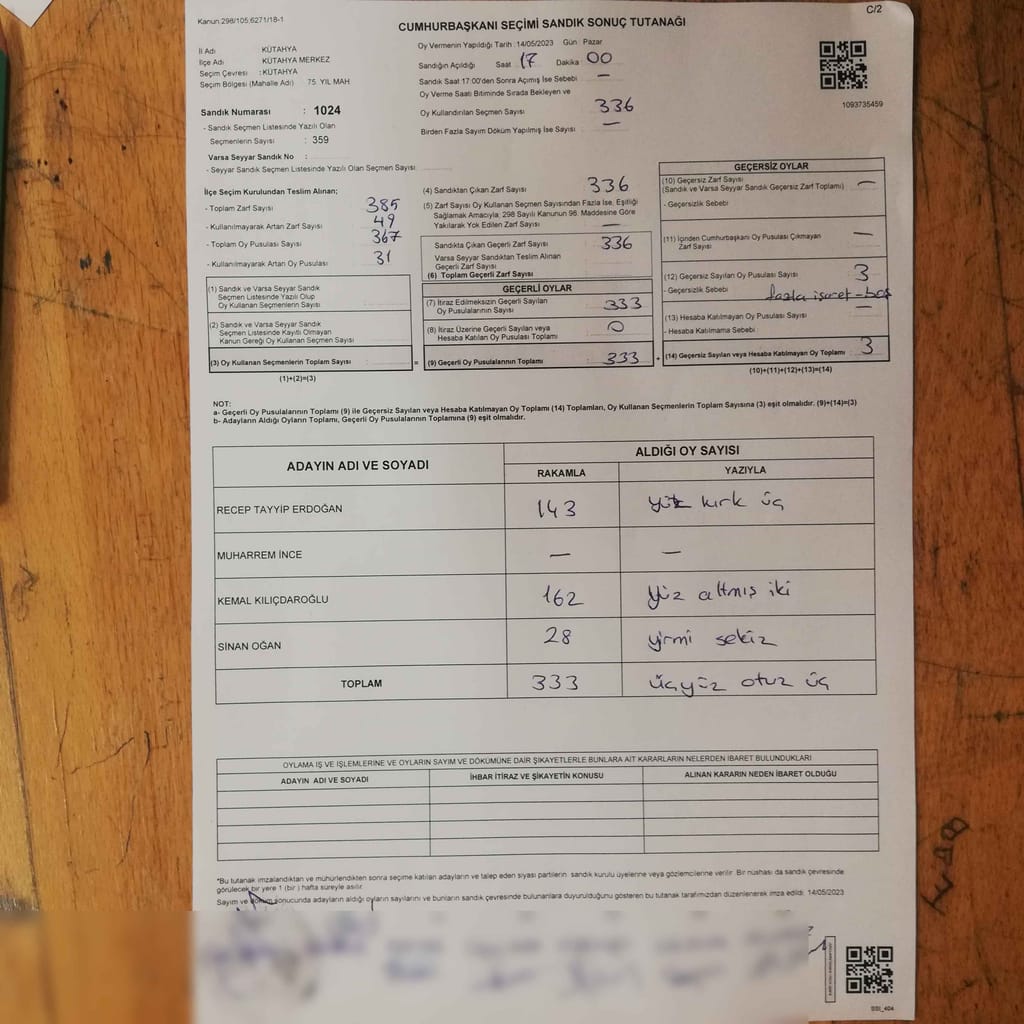 Kanun 298/105;6271/18-1
C/2
CUMHURBAŞKANI SEÇİMİ SANDIK SONUÇ TUTANAĞI
İl Adı KÜTAHYA
İlçe Adı KÜTAHYA MERKEZ
Seçim Çevresi : KÜTAHYA
Seçim Bölgesi (Mahalle Adı) 75. YIL MAH
Sandık Numarası : 1024
- Sandık Seçmen Listesinde Yazılı Olan
Seçmenlerin Sayısı : 359
Varsa Seyyar Sandık No :
- Seyyar Sandık Seçmen Listesinde Yazılı Olan Seçmen Sayısı
Oy Vermenin Yapıldığı Tarih : 14/05/2023 Gün : Pazar
Sandığın Açıldığı Saat 17 Dakika 00
Sandık Saat 17:00'den Sonra Açımış İse Sebebi —
Oy Verme Saati Bitiminde Sırada Bekleyen ve
Oy Kullandırılan Seçmen Sayısı 336
Birden Fazla Sayım Döküm Yapılmış İse Sayısı —
1093735459
İlçe Seçim Kurulundan Teslim Alınan;
- Toplam Zarf Sayısı 385
- Kullanılmayarak Artan Zarf Sayısı 49
- Toplam Oy Pusulası Sayısı 367
- Kullanılmayarak Artan Oy Pusulası 31
(1) Sandık ve Varsa Seyyar Sandık
Seçmen Listesinde Yazılı Olup
Oy Kullanan Seçmenlerin Sayısı
(2) Sandık ve Varsa Seyyar Sandık
Seçmen Listesinde Kayıtlı Olmayan
Kanun Gereği Oy Kullanan Seçmen Sayısı
(3) Oy Kullanan Seçmenlerin Toplam Sayısı =
(1)+(2)=(3)
(4) Sandıktan Çıkan Zarf Sayısı 336
(5) Zarf Sayısı Oy Kullanan Seçmen Sayısından Fazla İse, Eşitliği
Sağlamak Amacıyla; 298 Sayılı Kanunun 98. Maddesine Göre
Yakılarak Yok Edilen Zarf Sayısı —
Sandıkta Çıkan Geçerli Zarf Sayısı 336
Varsa Seyyar Sandıktan Teslim Alınan
Geçerli Zarf Sayısı
(6) Toplam Geçerli Zarf Sayısı
GEÇERLİ OYLAR
(7) İtiraz Edilmeksizin Geçerli Sayılan
Oy Pusulalarının Sayısı 333
(8) İtiraz Üzerine Geçerli Sayılan veya
Hesaba Katılan Oy Pusulası Toplamı 0
(9) Geçerli Oy Pusulalarının Toplamı 333 +
GEÇERSİZ OYLAR
(10) Geçersiz Zarf Sayısı
(Sandık ve Varsa Seyyar Sandık Geçersiz Zarf Toplamı) —
- Geçersizlik Sebebi
(11) İçinden Cumhurbaşkanı Oy Pusulası Çıkmayan
Zarf Sayısı —
(12) Geçersiz Sayılan Oy Pusulası Sayısı 3
- Geçersizlik Sebebi fazla işaret-boş
(13) Hesaba Katılmayan Oy Pusulası Sayısı —
- Hesaba Katılmama Sebebi
(14) Geçersiz Sayılan veya Hesaba Katılmayan Oy Toplamı 3
(10)+(11)+(12)+(13)=(14)
NOT:
a- Geçerli Oy Pusulalarının Toplamı (9) ile Geçersiz Sayılan veya Hesaba Katılmayan Oy Toplamı (14) Toplamları, Oy Kullanan Seçmenlerin Toplam Sayısına (3) eşit olmalıdır. (9)+(14)=(3)
b- Adayların Aldığı Oyların Toplamı, Geçerli Oy Pusulalarının Toplamına (9) eşit olmalıdır.
ADAYIN ADI VE SOYADI ALDIĞI OY SAYISI
RAKAMLA YAZIYLA
RECEP TAYYİP ERDOĞAN 143 yüz kırk üç
MUHARREM İNCE — —
KEMAL KILIÇDAROĞLU 162 yüz altmış iki
SİNAN OĞAN 28 yirmi sekiz
TOPLAM 333 üçyüz otuz üç
OYLAMA İŞ VE İŞLEMLERİNE VE OYLARIN SAYIM VE DÖKÜMÜNE DAİR ŞİKAYETLERLE BUNLARA AİT KARARLARIN NELERDEN İBARET BULUNDUKLARI
ADAYIN ADI VE SOYADI İHBAR İTİRAZ VE ŞİKAYETİN KONUSU ALINAN KARARIN NEDEN İBARET OLDUĞU
*Bu tutanak imzalandıktan ve mühürlendikten sonra seçime katılan adayların ve talep eden siyasi partilerin sandık kurulu üyelerine veya gözlemcilerine verilir. Bir nüshası da sandık çevresinde
görülecek bir yere 1 (bir) hafta süreyle asılır.
Sayım ve döküm sonucunda adayların aldığı oyların sayılarını ve bunların sandık çevresinde bulunanlara duyurulduğunu gösteren bu tutanak tarafımızdan düzenlenerek imza edildi. 14/05/2023